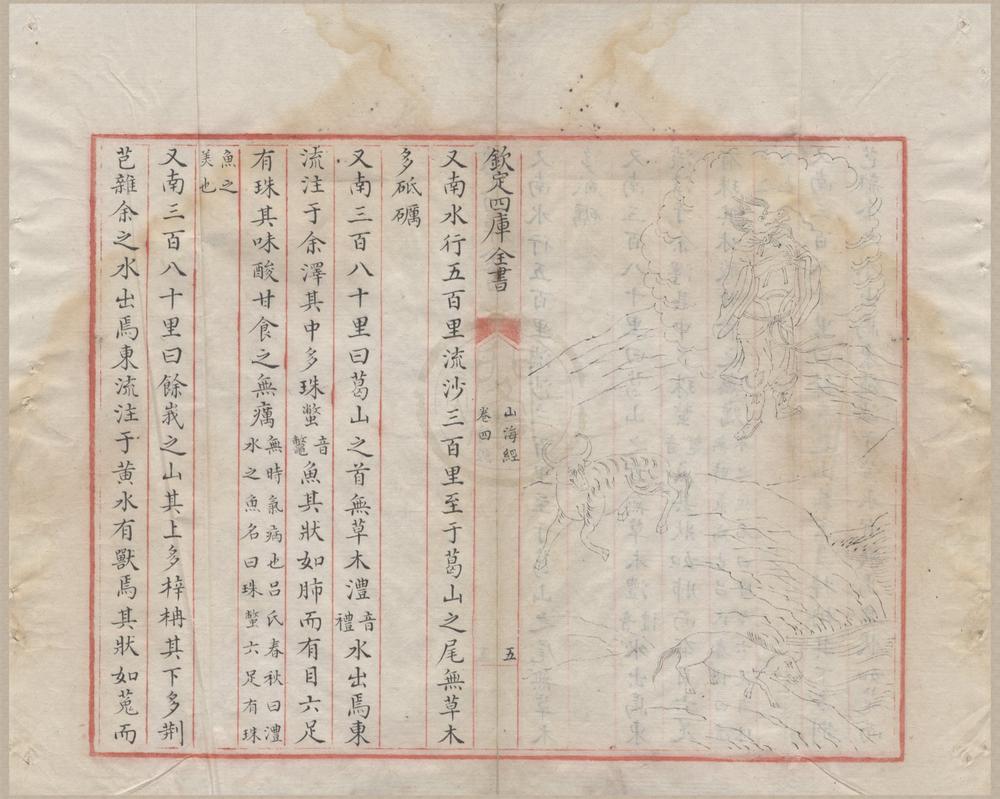 欽定四庫全書
山海經
卷四
五
又南水行五百里流沙三百里至于葛山之尾無草木
多砥礪
又南三百八十里曰葛山之首無草木澧音禮水出焉東
流注于余澤其中多珠蟞音鼈魚其狀如肺而有目六足
有珠其味酸甘食之無癘無時氣病也吕氏春秋曰澧水之魚名曰珠蟞六足有珠
魚之美也
又南三百八十里曰餘峩之山其上多梓枏其下多荆
芑雜余之水出焉東流注于黄水有獸焉其狀如菟而